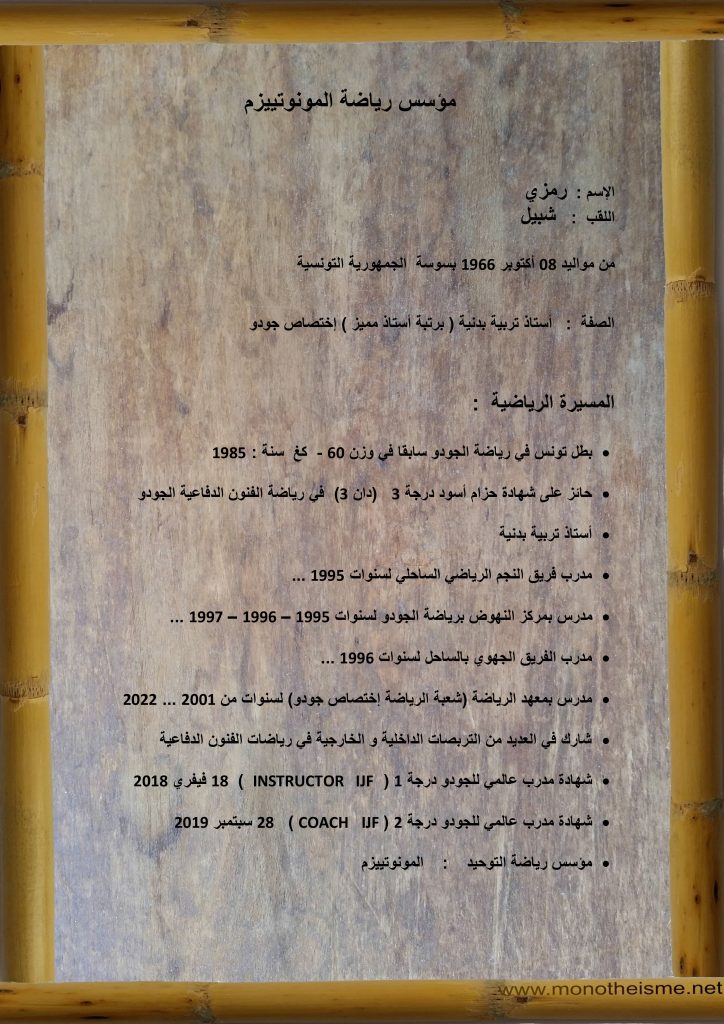 مؤسس رياضة المونوتييزم
الإسم : رمزي
اللقب : شبيل
من مواليد 08 أكتوبر 1966 بسوسة الجمهورية التونسية
الصفة : أستاذ تربية بدنية ( برتبة أستاذ مميز ) إختصاص جودو
المسيرة الرياضية :
• بطل تونس في رياضة الجودو سابقا في وزن 60 - كغ سنة : 1985
• حائز على شهادة حزام أسود درجة 3 (دان 3) في رياضة الفنون الدفاعية الجودو
• أستاذ تربية بدنية
• مدرب فريق النجم الرياضي الساحلي لسنوات 1995 ...
• مدرس بمركز النهوض برياضة الجودو لسنوات 1995 – 1996 – 1997 ...
• مدرب الفريق الجهوي بالساحل لسنوات 1996 ...
• مدرس بمعهد الرياضة (شعبة الرياضة إختصاص جودو) لسنوات من 2001 ... 2022
• شارك في العديد من التربصات الداخلية و الخارجية في رياضات الفنون الدفاعية
• شهادة مدرب عالمي للجودو درجة 1 ( INSTRUCTOR IJF ) 18 فيفري 2018
• شهادة مدرب عالمي للجودو درجة 2 ( COACH IJF ) 28 سبتمبر 2019
• مؤسس رياضة التوحيد : المونوتييزم
www.monotheisme.net